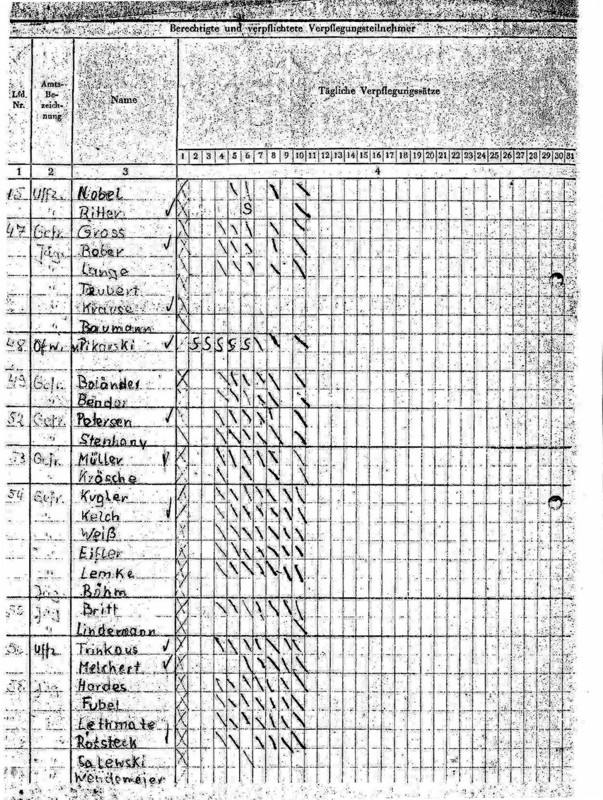 Berechtigte und verpflichtete Verpflegungsteilnehmer
Lfd. Nr. Amts- Be- zeich- nung Name Tägliche Verpflegungssätze
1 2 3 4 5 6 7 8 9 10 11 12 13 14 15 16 17 18 19 20 21 22 23 24 25 26 27 28 29 30 31
1 2 3 4
15 Uffz. Nobel
" Ritter S
47 Gefr. Gross
Jäg. Bober
" Lange
" Teubert
" Krause
" Baumann
48 Ofw. Pikarski S S S S S
49 Gefr. Boländer
" Bender
52 Gefr. Petersen
" Stephany
53 Gefr. Müller
" Krösche
54 Gefr. Kugler
" Kelch
" Weiß
" Eifler
" Lemke
Jäg. Böhm
55 Jäg. Britt
" Lindermann
56 Uffz Trinkaus
" Melchert
58 Jäg. Hardes
" Fubel
" Lethmate
" Rotsteck
Salewski
Wendemeier